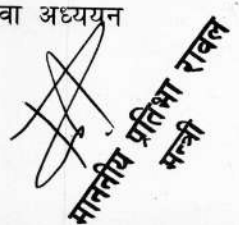 वा अध्ययन
माननीय प्रतिभा रावल
मन्त्री